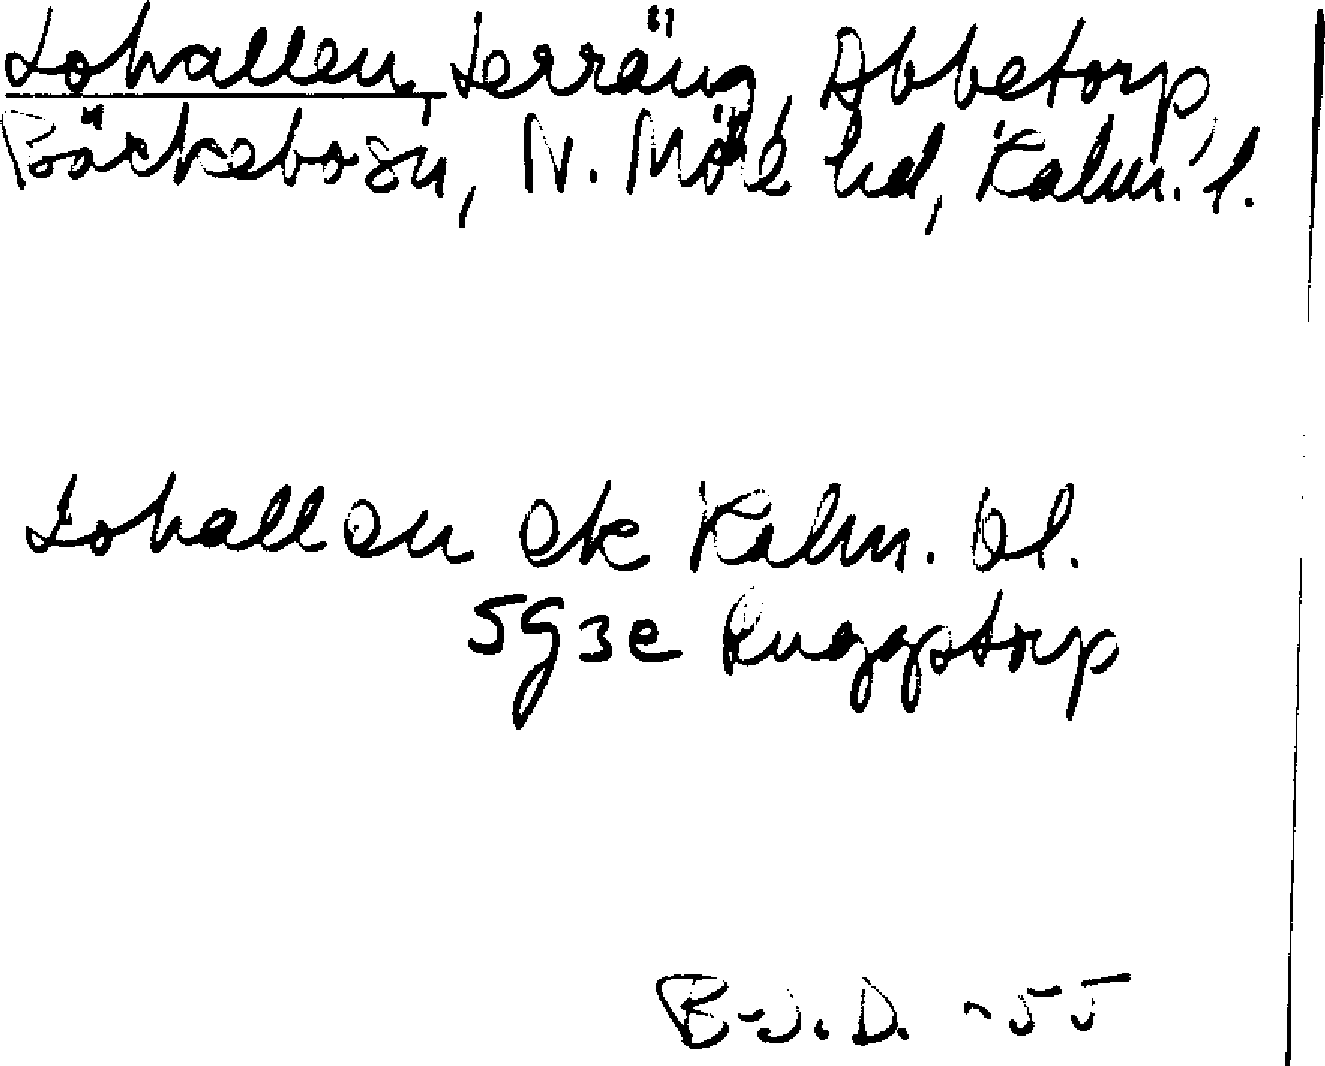 Lohallen, terräng, Abbetorp,
Bäckeborn, N. Möre hd, Kalm. l.
Lohallen ek Kalm. bl.
5G3e Ruggstorp
B-J. D. -55